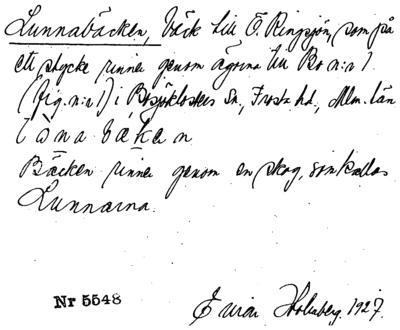 Lunnabäcken, bäck till Ö. Ringsjön, som på
ett stycke rinner genom ägorna till Bo n:r 1
(fig. n:r 1) i Bosjöklosters sn, Frosta hd, Mlm. län
lònabækan
Bäcken rinner genom en skog, som kallas
Lunnarna.
Nr 5548 Holmberg. 1927.